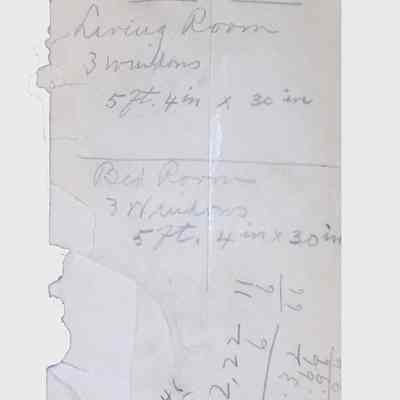 Living Room
3 windows
5 ft. 4 in x 30 in
Bed Room
3 Windows
5 ft. 4 in x 30 in